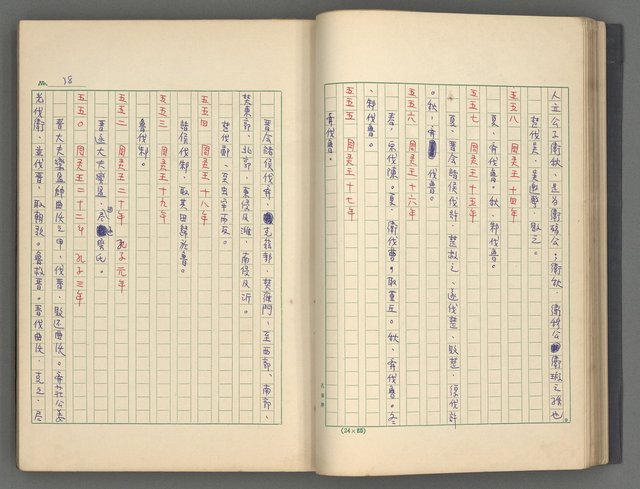 人立公子衛秋，是為衛殤公；衛秋，衛穆公衛遬之孫也。
楚伐吳，吳邀擊，敗之。
五五八 周灵王十四年
夏，齊伐魯。秋，邾伐魯。
五五七 周灵王十五年
夏，晋会諸侯伐許，楚救之，遂伐楚，敗楚，復伐許
。秋，齊伐魯。
五五六 周灵王十六年
春，宋伐陳。夏，衛伐曹，取重丘。秋，齊伐魯。冬
，邾伐魯。
五五五 周灵王十七年
齊伐魯。
(24×25)
No. 18
晋会諸侯伐齊，克茲郭，焚雍門，至西郭、南郭，
焚東郭、北郭，東侵及濰，南侵及沂。
楚伐鄭，至虫牢而反。
五五四 周灵王十八年
諸侯伐邾，取其田歸於魯。
五五三 周灵王十九年
魯伐邾。
五五二 周灵王二十年 孔子元年
晋逐大夫欒盈，尽逐欒氏。
五五〇 周灵王二十二年 孔子三年
晋大夫欒盈帥曲沃之甲，伐晋，敗還曲沃。齊莊公姜
光伐衛，並伐晋，取朝歌。魯救晋。晋伐曲沃，克之，尽